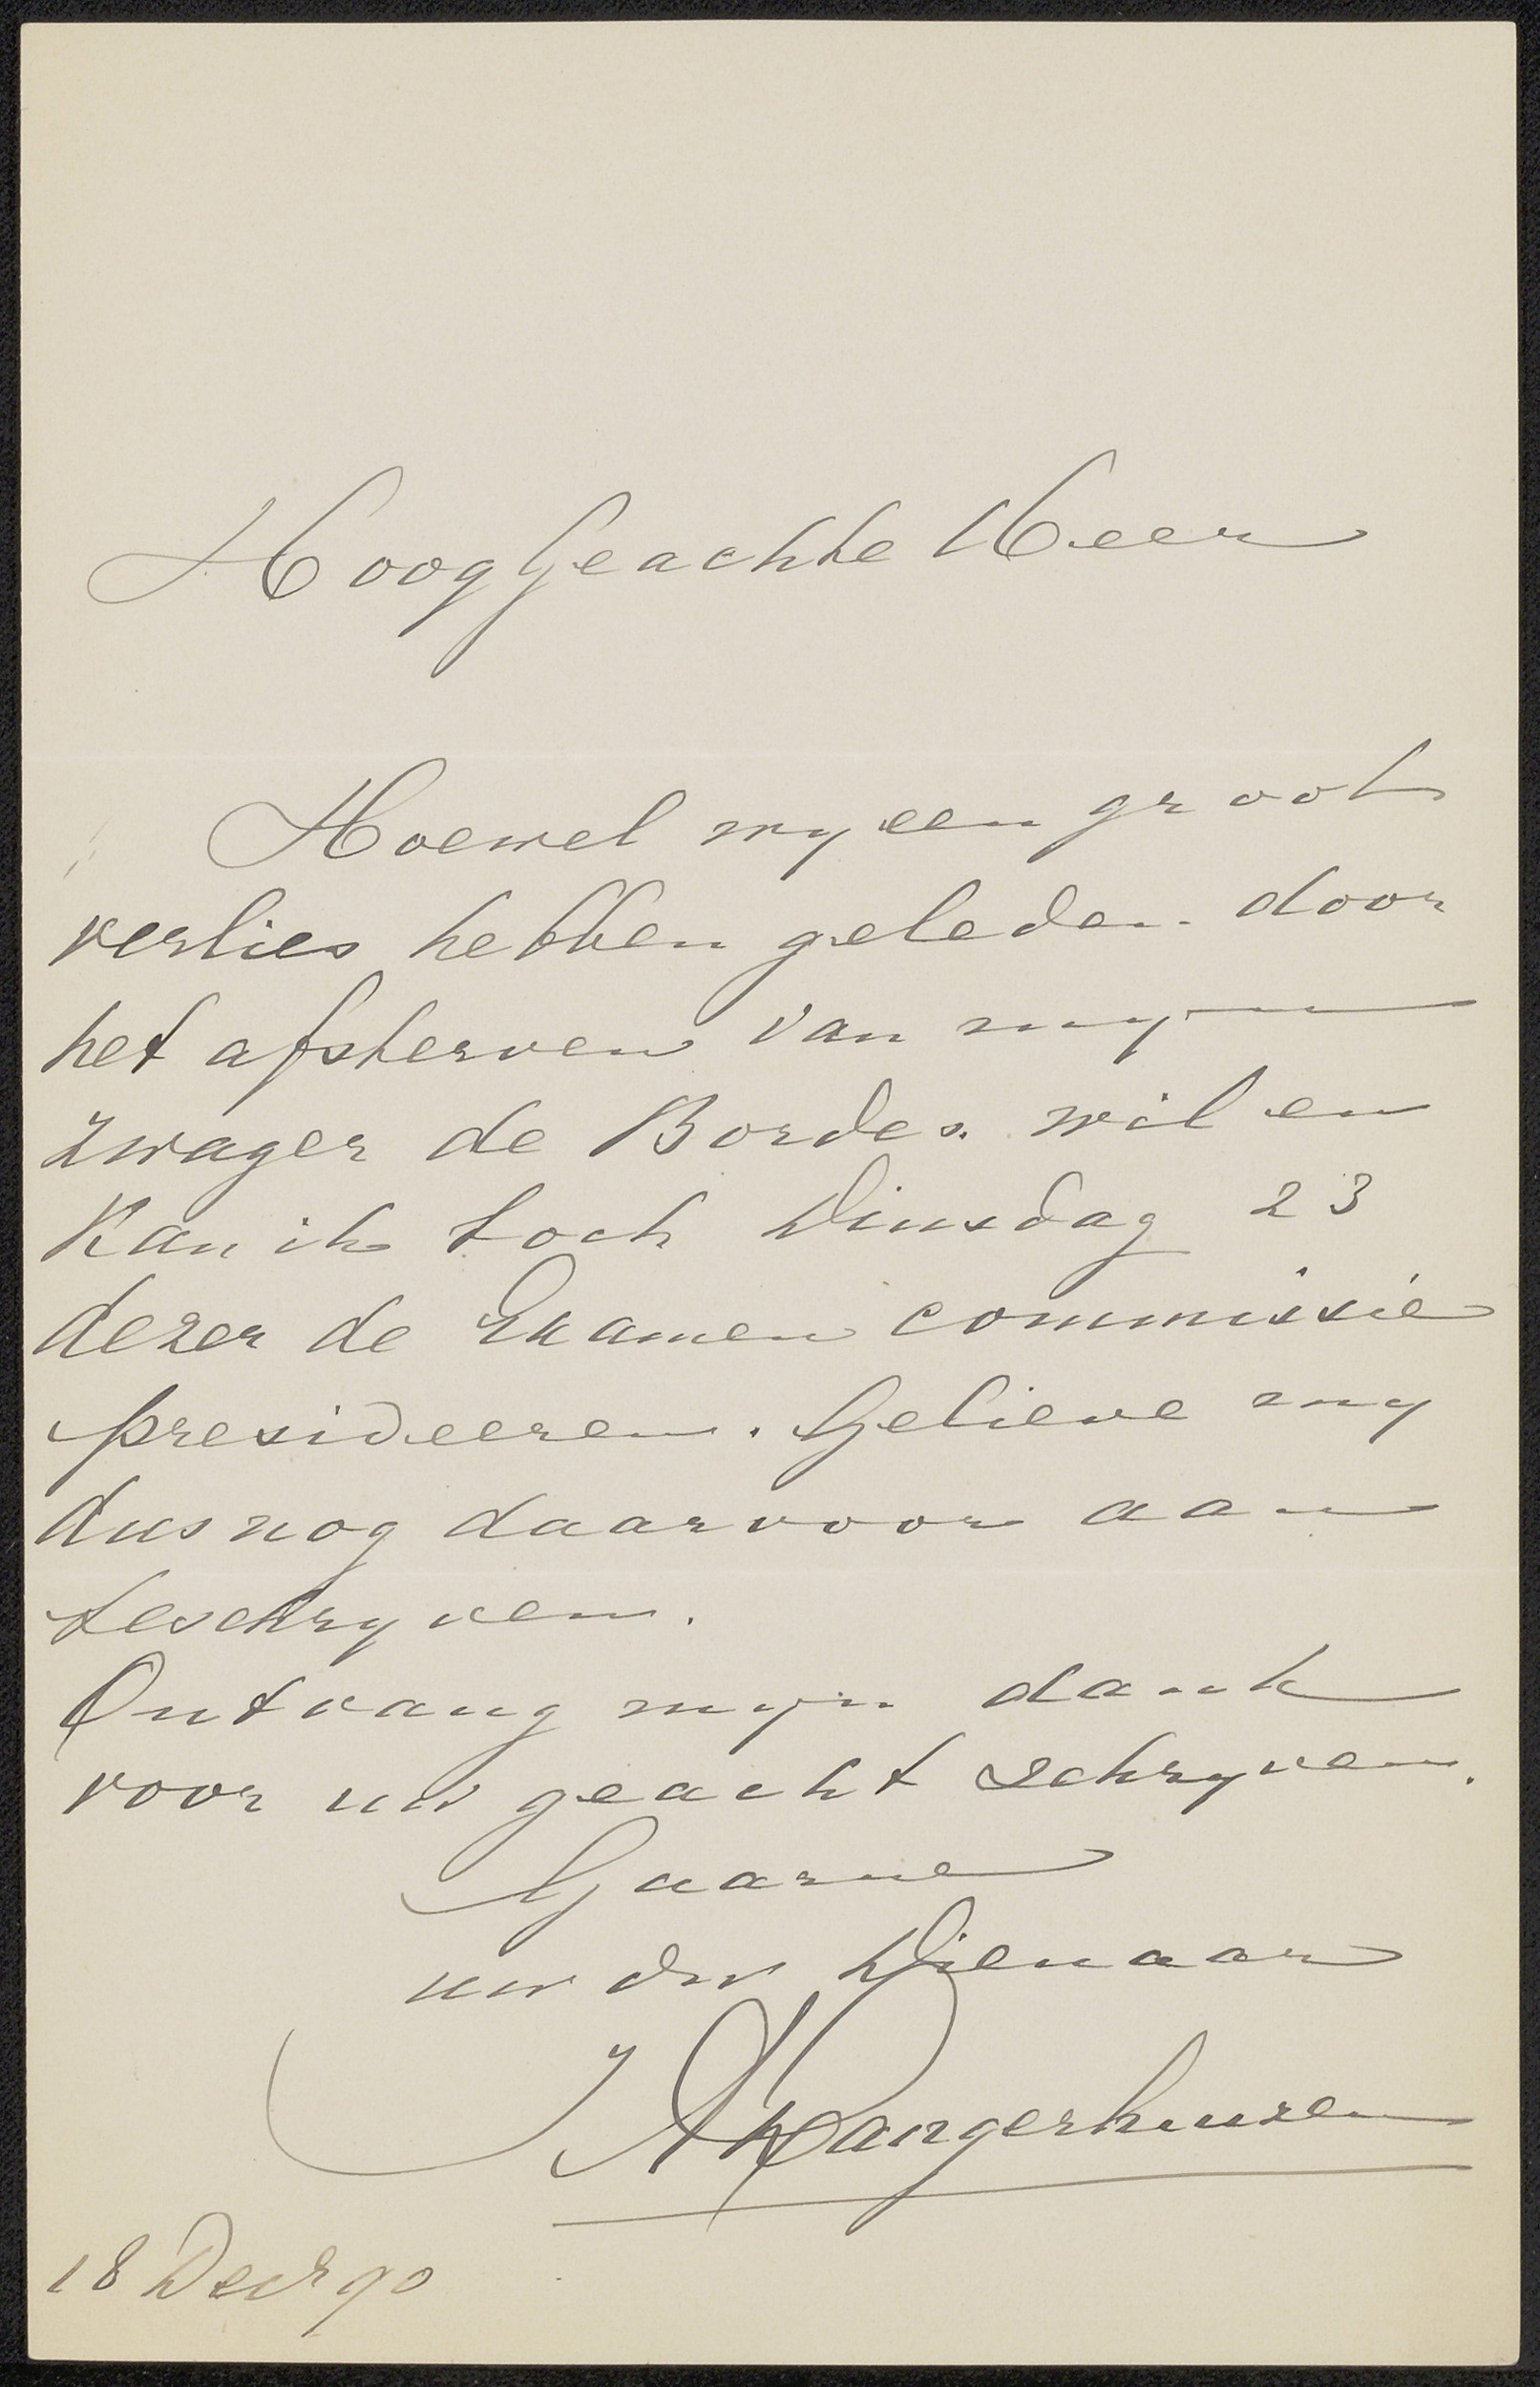 Hoog Geachte Heer
Hoewel wy een groot
verlies hebben geleden door
het afsterven van myn
zwager de Bordes. wil en
kan ik toch Dinsdag 23
dezer de Examen commissie
presideeren. Gelieve my
dus nog daarvoor aan
teschryven.
Ontvang myn dank
voor uw geacht schryven.
Gaarne
uw dw Dienaar
18 Decbr 90